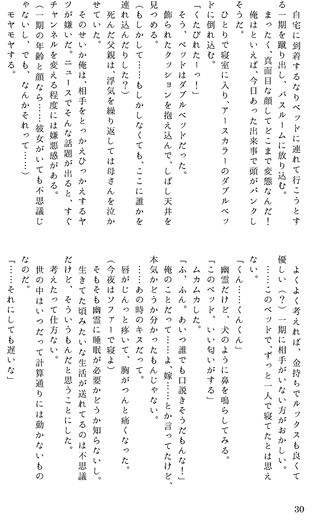 自宅に到着するなりベッドに連れて行こうとす
る一期を り出し、バスルームに放り込む。
まったく、真面目な顔してどこまで変態なんだ！
俺はといえば、今日あった出来事で頭がパンクし
そうだ。
ひとりで寝室に入り、アースカラーのダブルベッ
ドに倒れ込む。
「くたびれたーっ！」
そう、ベッドはダブルベッドだった。
飾られたクッションを抱え込んで、しばし天井を
見つめる。
（もしかして……もしかしなくても、ここに誰かを
連れ込んだりした？）
死んだ父親は、浮気を繰り返しては母さんを泣か
せていた。
そのせいか俺は、相手をとっかえひっかえするヤ
ツが嫌いだ。ニュースでそんな話題が出ると、すぐ
チャンネルを変える程度には嫌悪感がある。
（一期の年齢と顔なら……彼女がいても不思議じ
ゃないし、でも、なんかそれって……）
モヤモヤする。
よくよく考えれば、金持ちでルックスも良くて
優しい（？）一期に相手がいない方がおかしい。
……このベッドで、ずっと一人で寝てたとは思え
ない。
「くん……くんくん」
幽霊だけど、犬のように鼻を鳴らしてみる。
「このベッド、いい匂いがする」
ムカムカした。
「ふ、ふん。あいつ誰でも口説きそうだもんな！」
俺のことだって……よ、嫁……とか言ってたけど、
本気かどうか分かったもんじゃない。
……あの時のキスだって。
唇がじんっと疼いて、胸がつんと痛くなった。
（今夜はソファーで寝よ）
そもそも幽霊に睡眠が必要かどうか知らないし、
生きてた頃みたいな生活が送れてるのは不思議
だけど、そういうもんだと思うことにした。
考えたって仕方ない。
世の中はいつだって計算通りには動かないもの
なのだ。
「……それにしても遅いな」
30